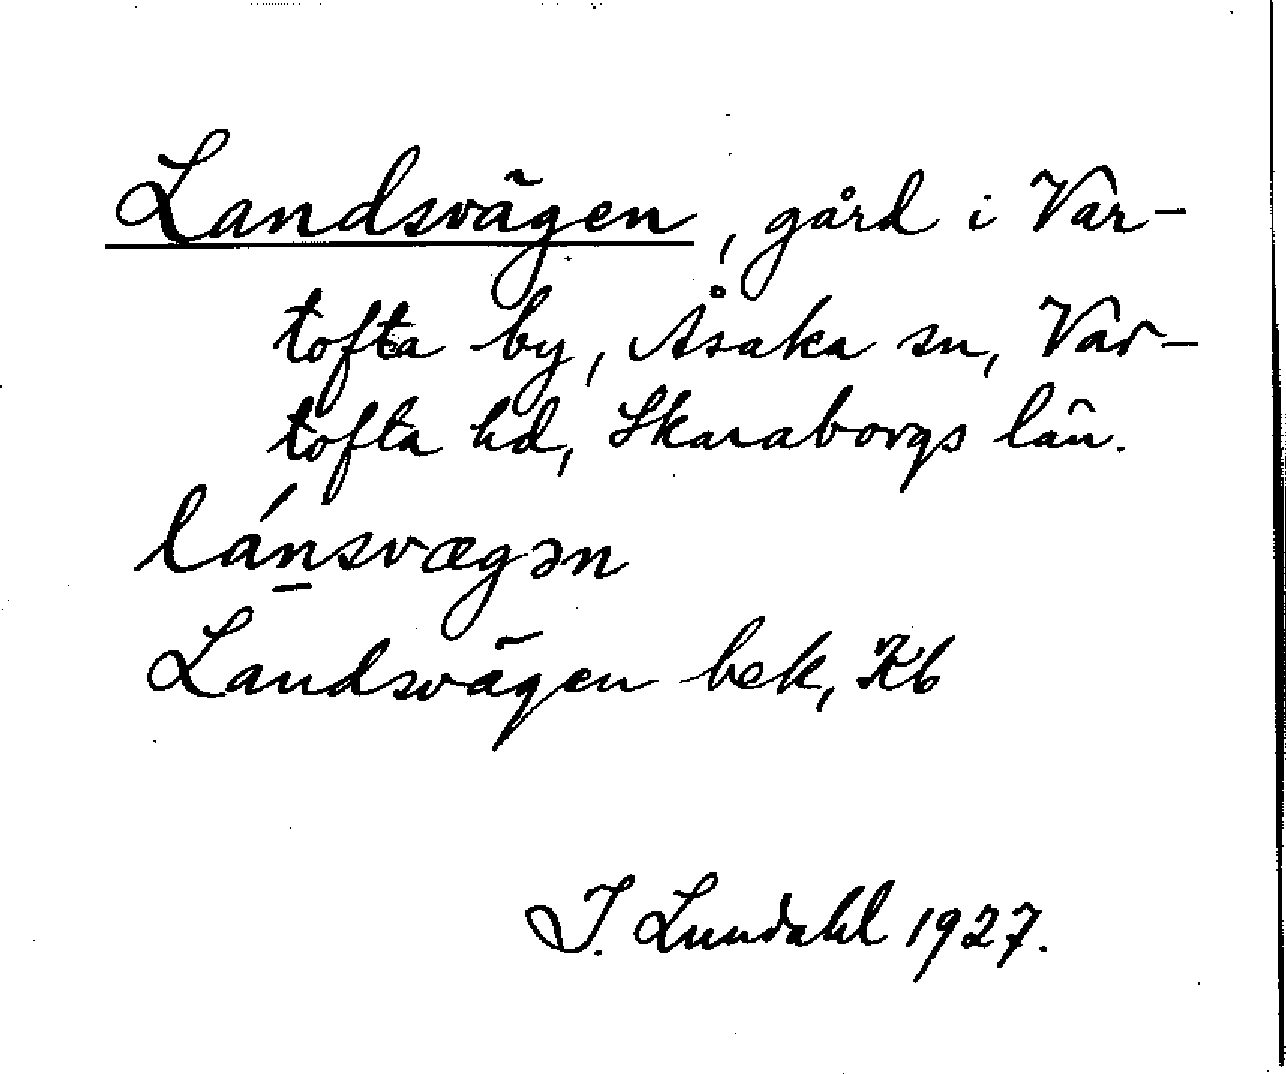 Landsvägen, gård i Var-
tofta by, Åsaka sn, Var-
tofta hd, Skaraborgs län.
lánsvægən
Landsvägen bek, Kb
I. Lundahl 1927.